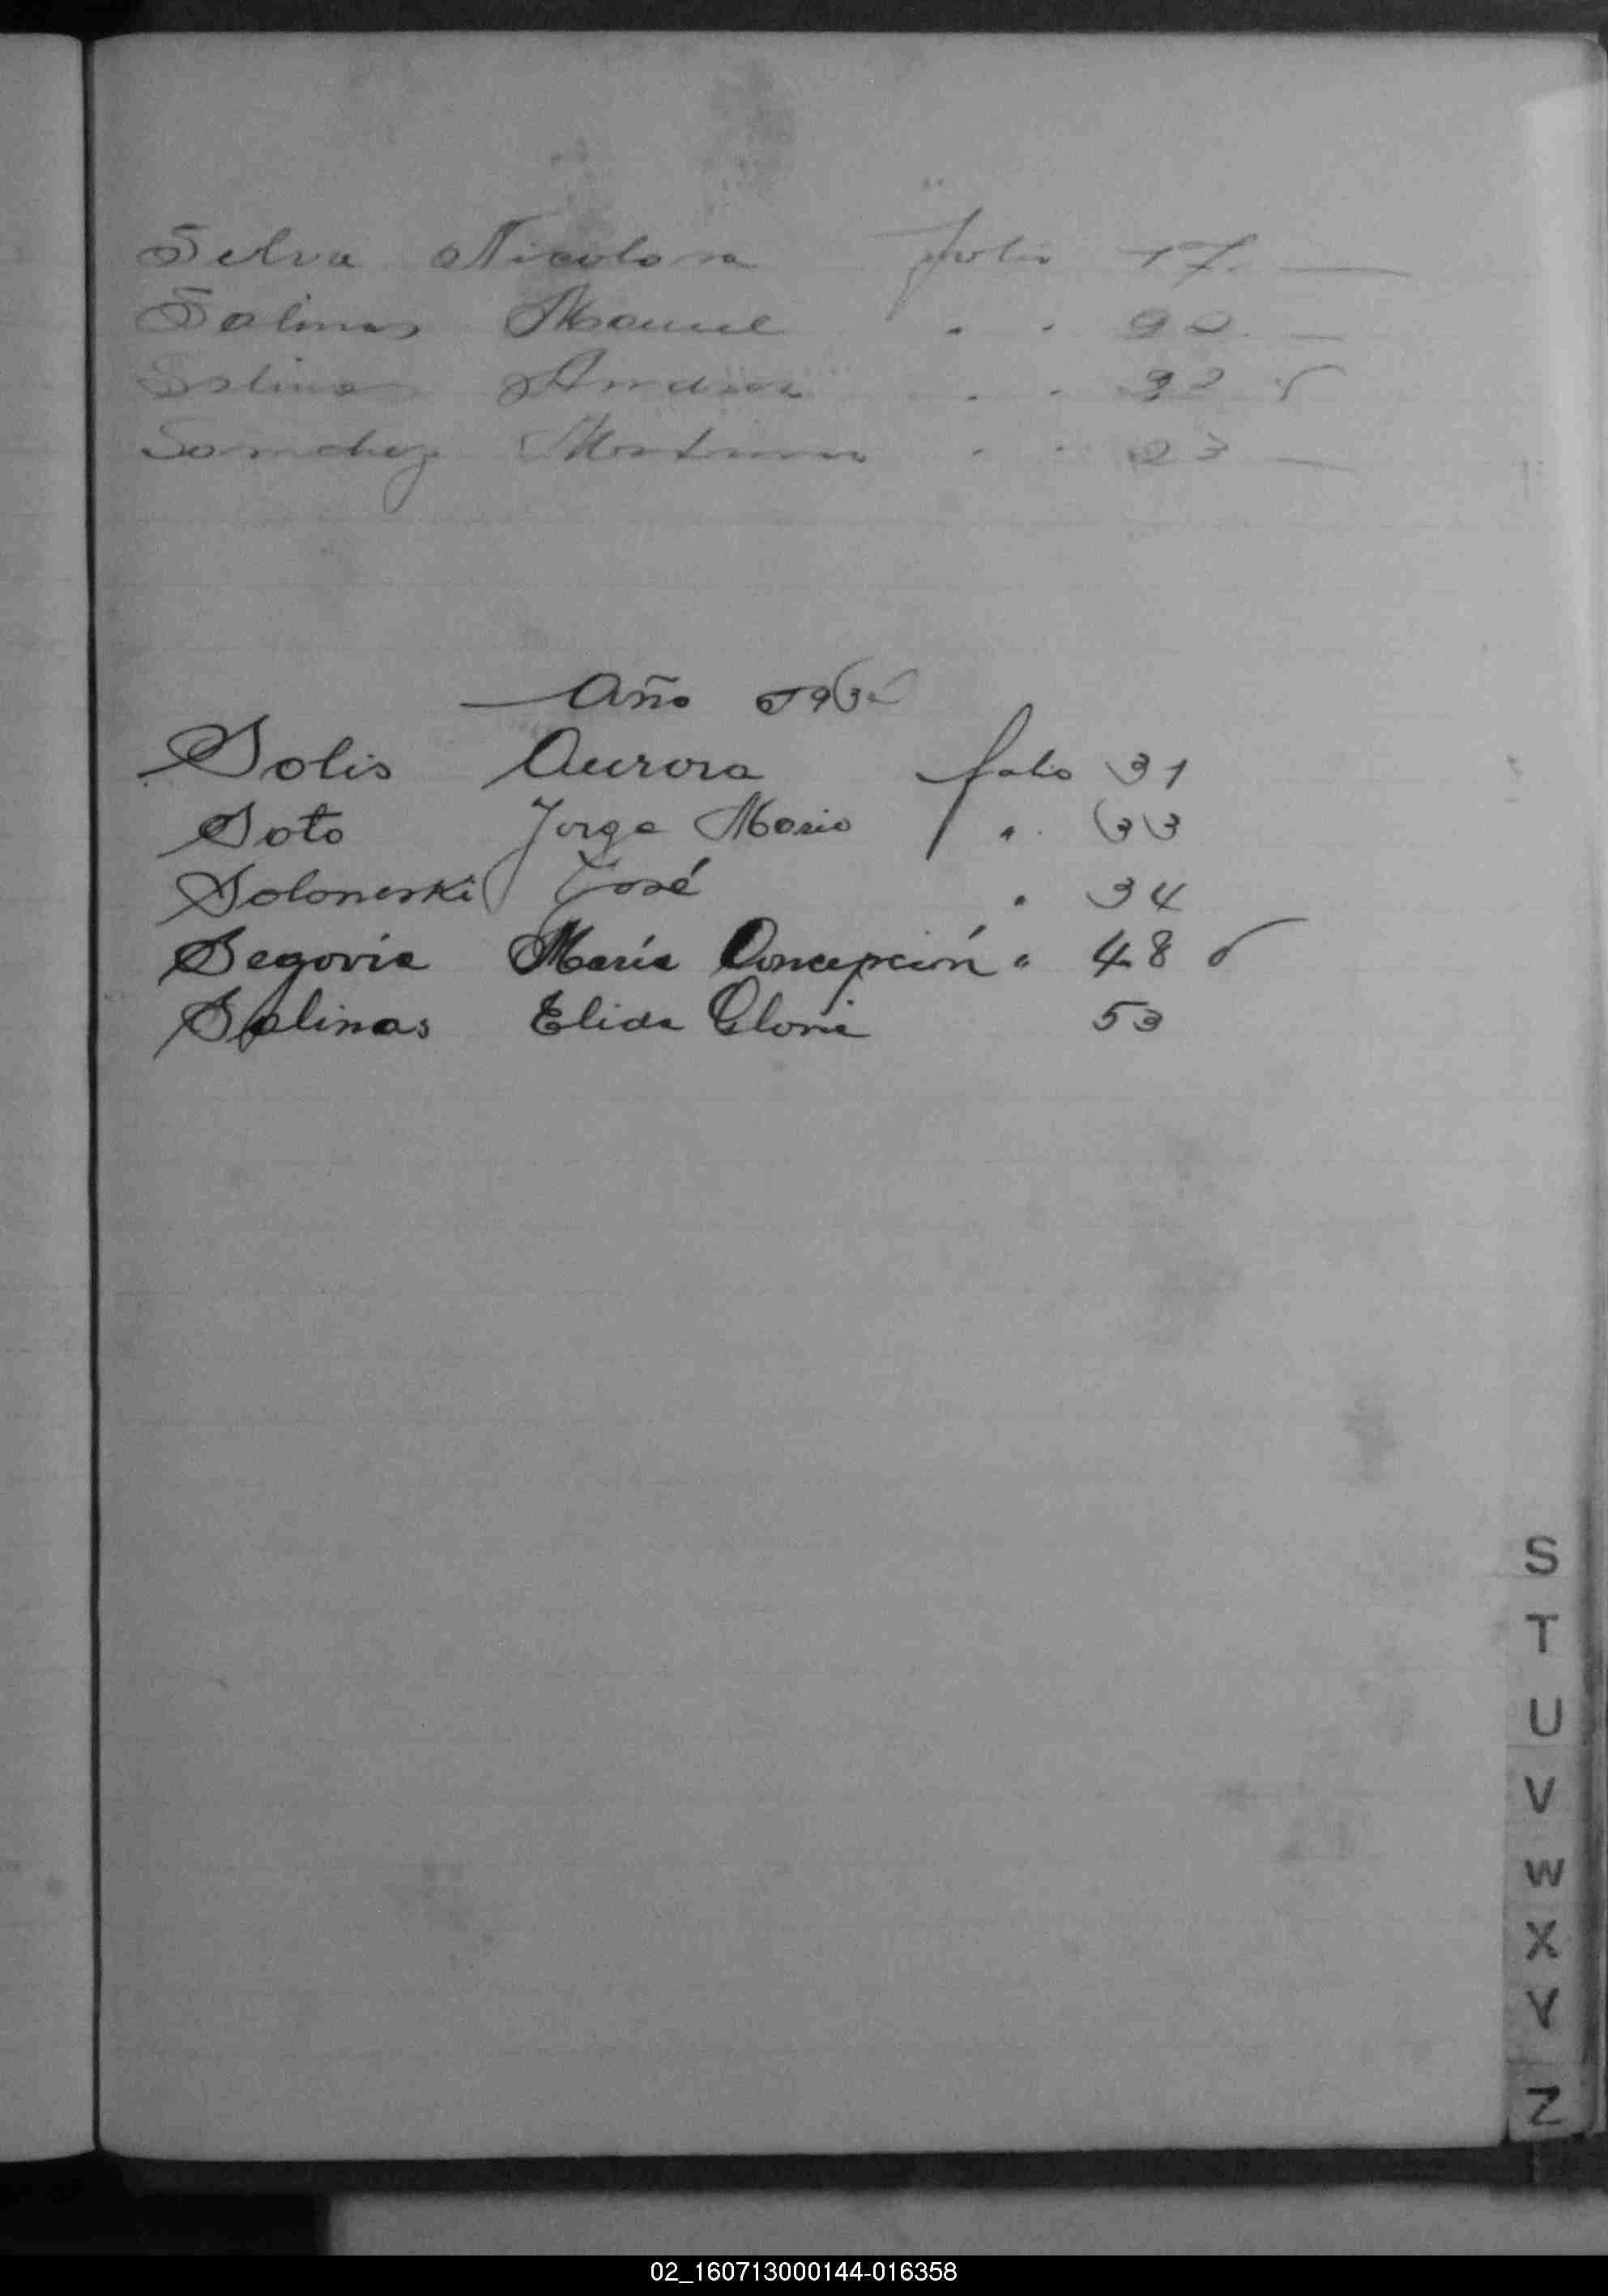 Selva Nicolasa folio 17. —
Salinas Manuel " " 20 —
Salinas " " 22
Sanchez " " 23 —
Año
Solis Aurora folio 31
Soto Jorge Mario " 33
Soloneski José " 34
Segovia María Concepción " 48
Salinas Elida Gloria 53
S
T
U
V
W
X
Y
Z
02_160713000144-016358